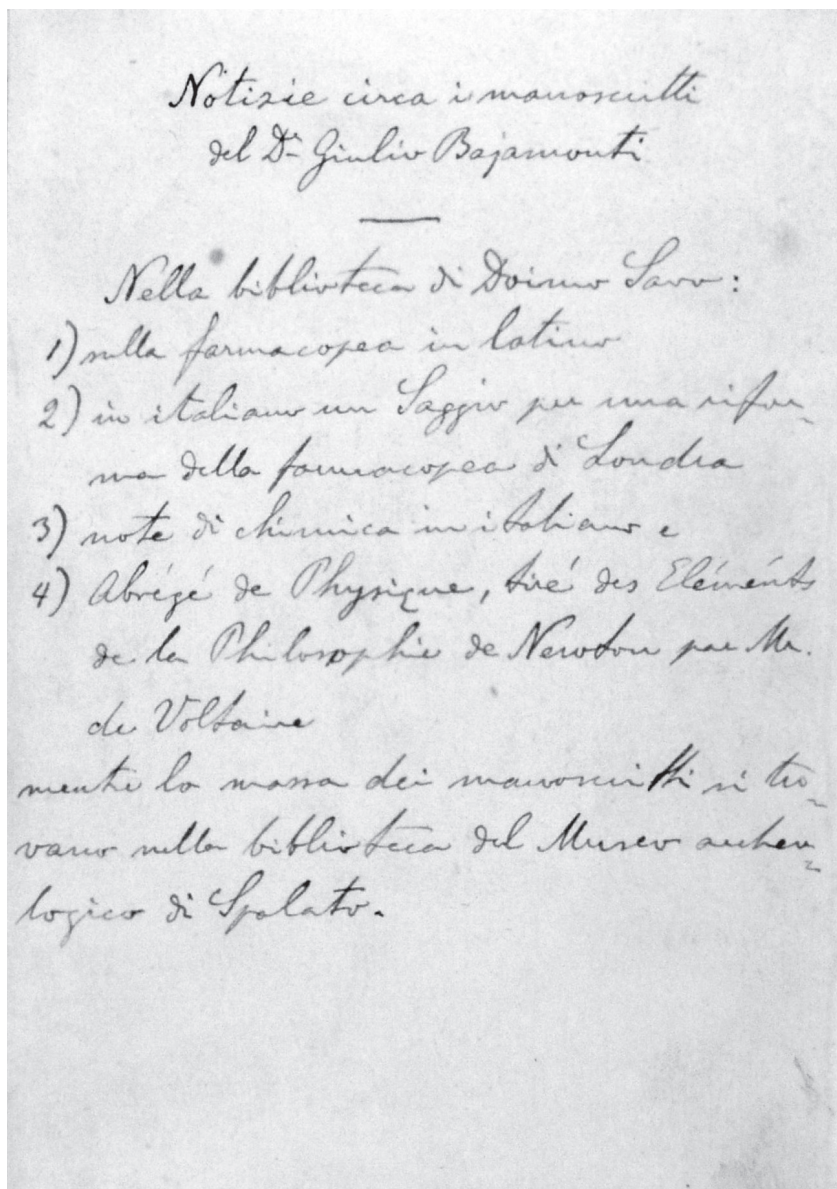 Notizie circa i manoscritti
del Dr. Giulio Bajamonti
Nella biblioteca di Doimo Savo:
1) nella farmacopea in latino
2) in italiano un Saggio per una rifor-
ma della farmacopea di Londra
3) note di chimica in italiano e
4) Abrégé de Physique, tiré des Eléménts
de la Philosophie de Newton par Mr.
de Voltaire
mentre la massa dei manoscritti si tro-
vano nella biblioteca del Museo archeo-
logico di Spalato.